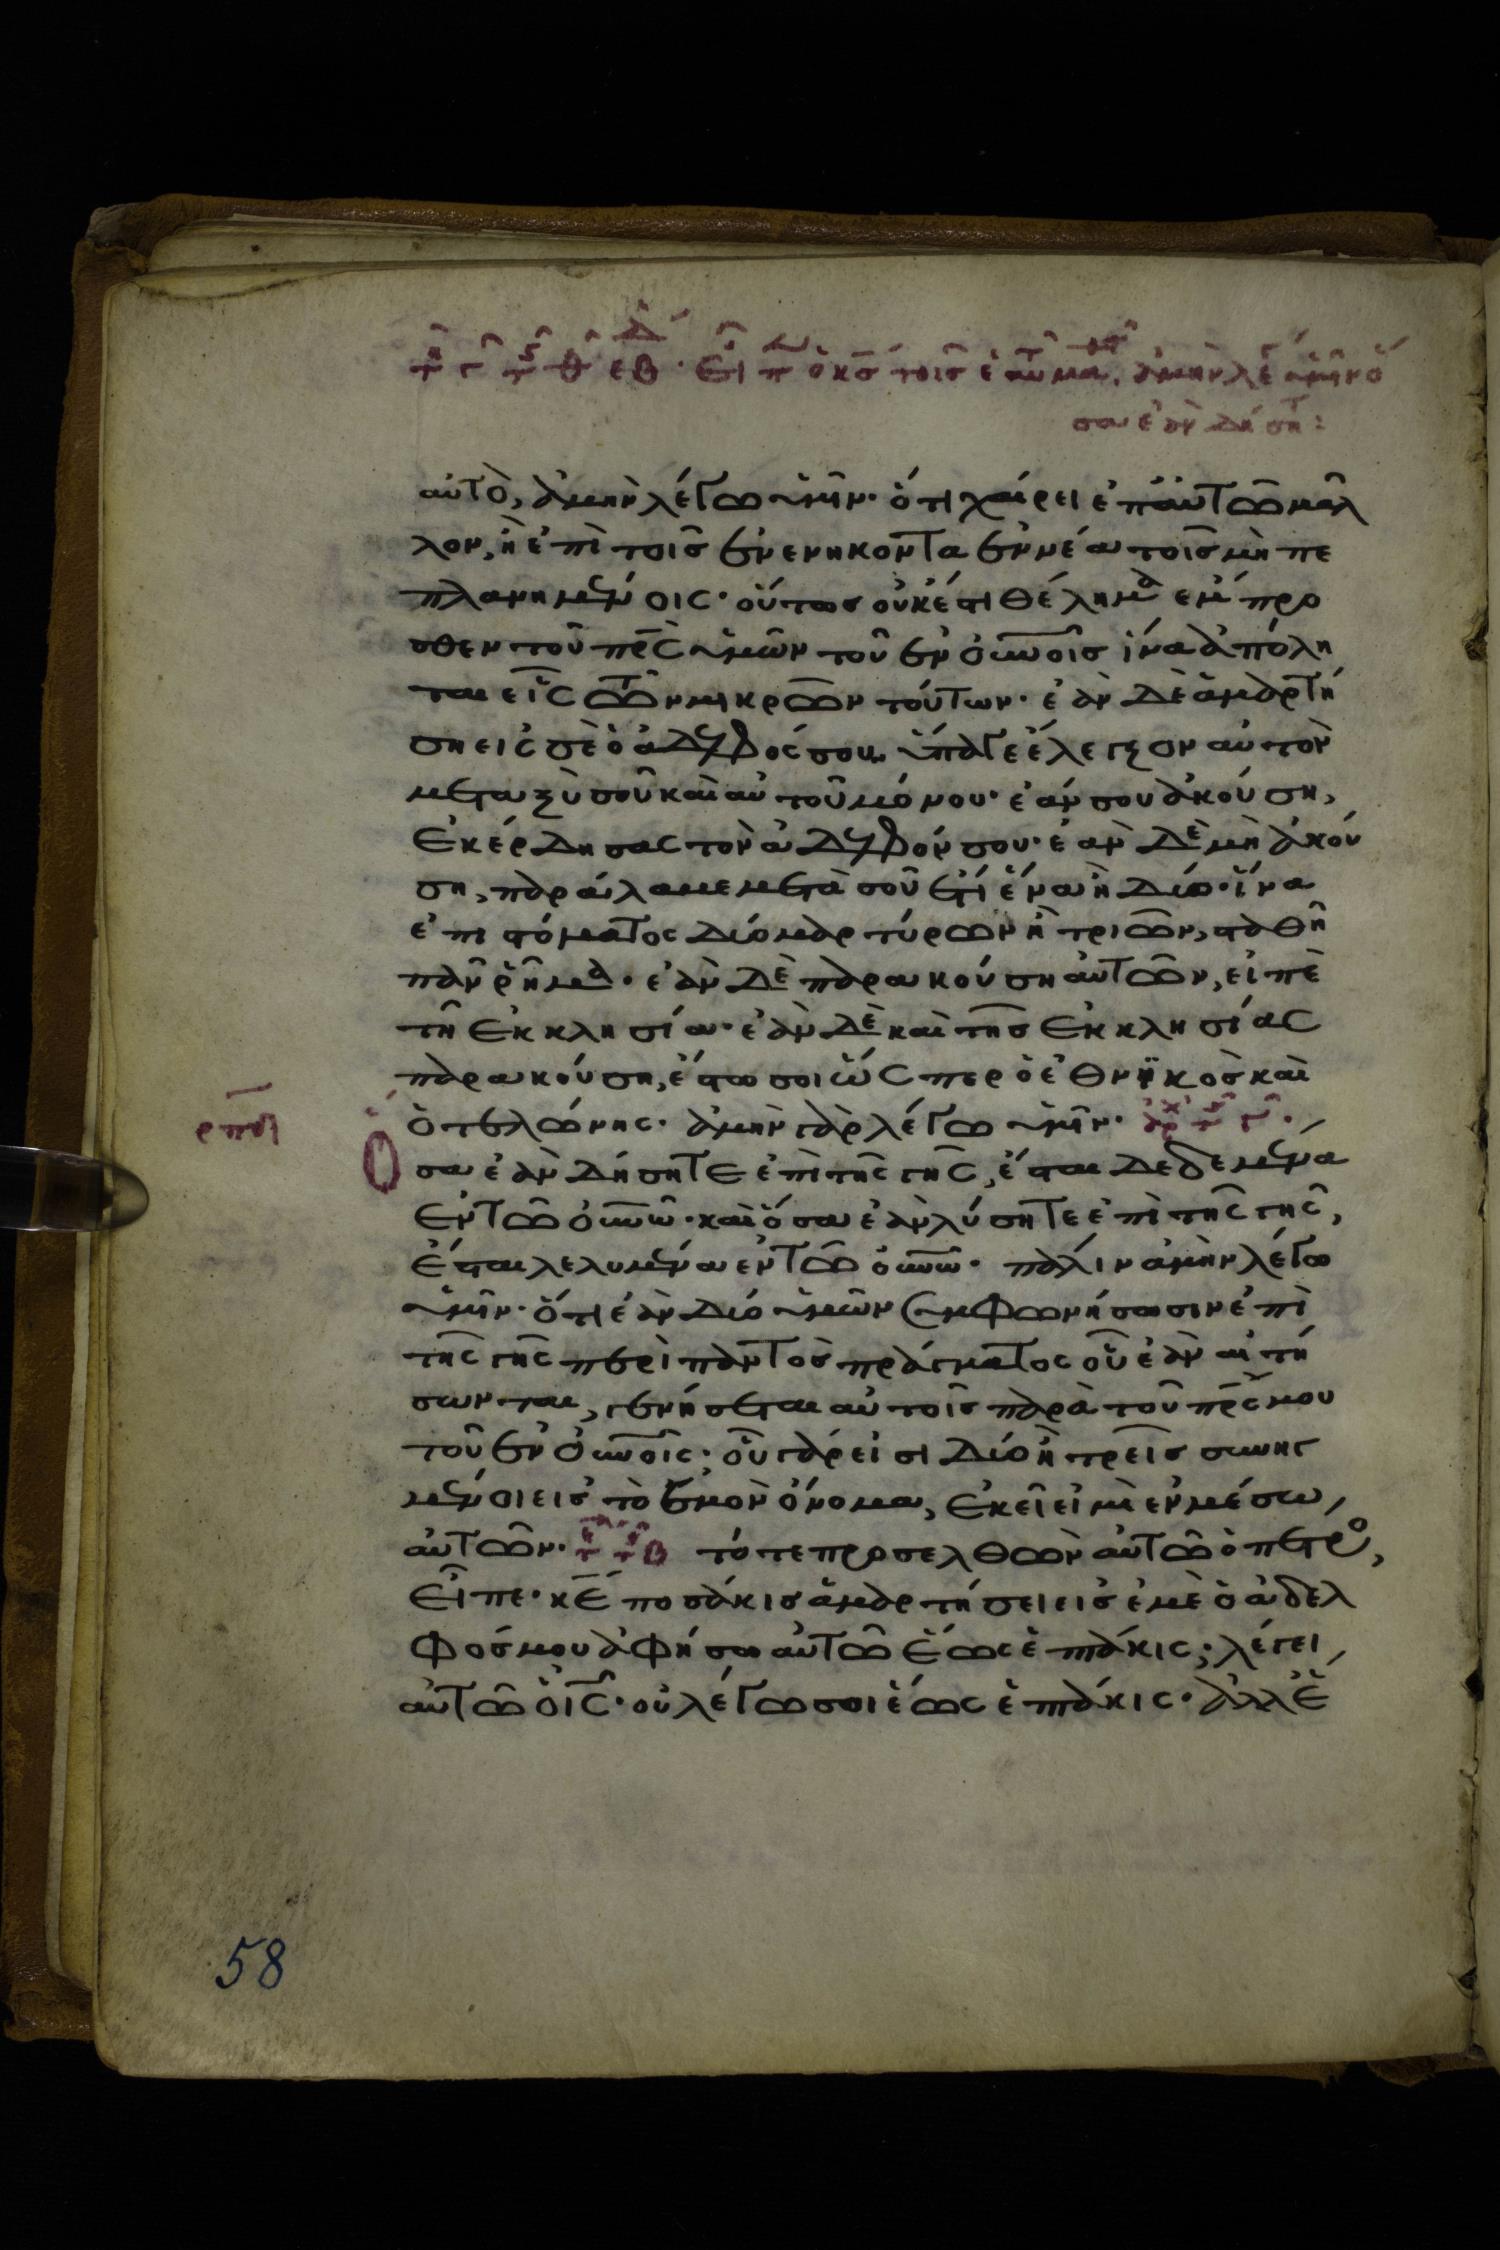 αὐτὸ, ἀμὴν λέγω ὑμῖν· ὅτι χαίρει ἐπ' αὐτῶ μᾶλ
λον, ἢ ἐπὶ τοῖς ἐνενηκοντα ἐννέα τοῖς μὴ πε
πλανημένοις· οὕτως οὐκ ἔστι θέλημα εμπρο
σθεν τοῦ πρς ὑμῶν τοῦ ἐν οὐνοις ἵνα ἀπόλη
ται εἷς τῶν μικρῶν τούτων· ἐὰν δὲ ἁμαρτή
ση εἰς σὲ ὁ ἀδελφός σου, ὕπαγε ἔλεγξον αὐτὸν
μεταξὺ σοῦ καὶ αὐτοῦ μόνου· ἐάν σου ἀκούση,
ἐκέρδησας τὸν ἀδελφόν σου· ἐὰν δὲ μὴ ἀκού
ση, παράλαμε μετὰ σοῦ ἔτι ἕνα ἢ δύο· ἵνα
ἐπι στόματος δύο μαρτύρων ἢ τριῶν, σταθῆ
πᾶν ῥῆμα· ἐὰν δὲ παρακούση αὐτῶν, εἰπὲ
τῆ ἐκκλησία· ἐὰν δὲ καὶ τῆς ἐκκλησίας
παρακούση, ἔστω σοι ὥσπερ ὁ ἐθνϊκὸς καὶ
ὁ τελώνης· ἀμὴν γὰρ λέγω ὑμῖν·
Ὅσα ἐὰν δήσητε ἐπὶ τῆς γῆς, ἔσται δεδεμένα
ἐν τῶ οὐνω· καὶ ὅσα ἐὰν λύσητε ἐπὶ τῆς γῆς,
ἔσται λελυμένα ἐν τῶ οὐνω· πάλιν ἀμὴν λέγω
ὑμῖν· ὅτι ἐὰν δύο ὑμῶν συμφωνήσωσιν ἐπὶ
τῆς γῆς περὶ παντὸς πράγματος οὗ ἐὰν αἰτή
σωνται, γενήσεται αὐτοῖς παρὰ τοῦ πρς μου
τοῦ ἐν οὐνοις· οὗ γάρ εἰσι δύο ἢ τρεῖς συνηγ
μένοι εἰς τὸ ἐμὸν ὄνομα, ἐκεῖ εἰμὶ ἐν μέσω
αὐτῶν· τότε προσελθὼν αὐτῶ ὁ πετρο,
εἶπε· κε ποσάκις ἁμαρτήσει εἰς ἐμὲ ὁ ἀδελ
φός μου ἀφήσω αὐτῶ ἕως ἑπτάκις; λέγει
αὐτῶ ὁ ις· οὐ λέγω σοι ἕως ἑπτάκις· ἀλλ' ἕ
58